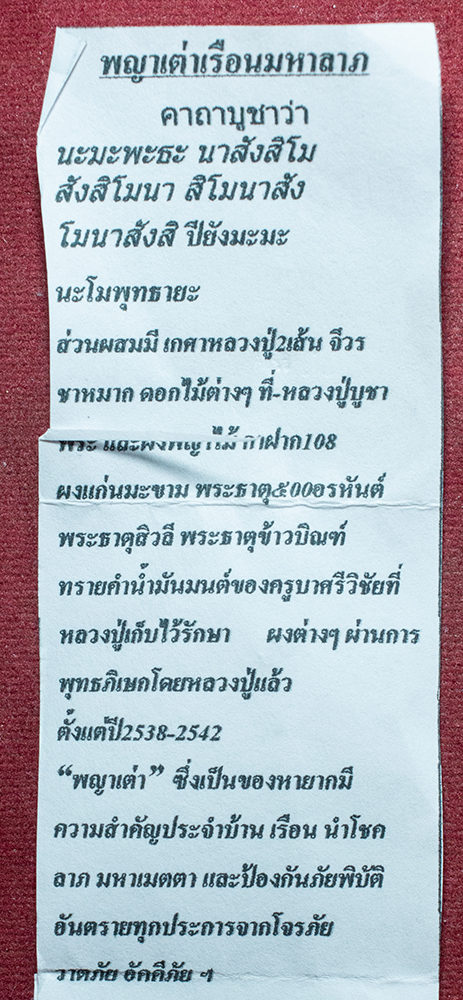 พญาเต่าเรือนมหาลาภ
คาถาบูชาว่า
นะมะพะธะ นาสังสิโม
สังสิโมนา สิโมนาสัง
โมนาสังสิ ปิยังมะมะ
นะโมพุทธายะ
ส่วนผสมมี เกศาหลวงปู่2เส้น จีวร
ชาหมาก ดอกไม้ต่างๆ ที่-หลวงปู่บูชา
พระ และผงพญาไม้ กาฝาก108
ผงแก่นมะขาม พระธาตุ๕00อรหันต์
พระธาตุสิวลี พระธาตุข้าวบิณฑ์
ทรายคำน้ำมันมนต์ของครูบาศรีวิชัยที่
หลวงปู่เก็บไว้รักษา ผงต่างๆ ผ่านการ
พุทธภิเษกโดยหลวงปู่แล้ว
ตั้งแต่ปี2538-2542
“พญาเต่า” ซึ่งเป็นของหายากมี
ความสำคัญประจำบ้าน เรือน นำโชค
ลาภ มหาเมตตา และป้องกันภัยพิบัติ
อันตรายทุกประการจากโจรภัย
วาตภัย อัคคีภัย ฯ